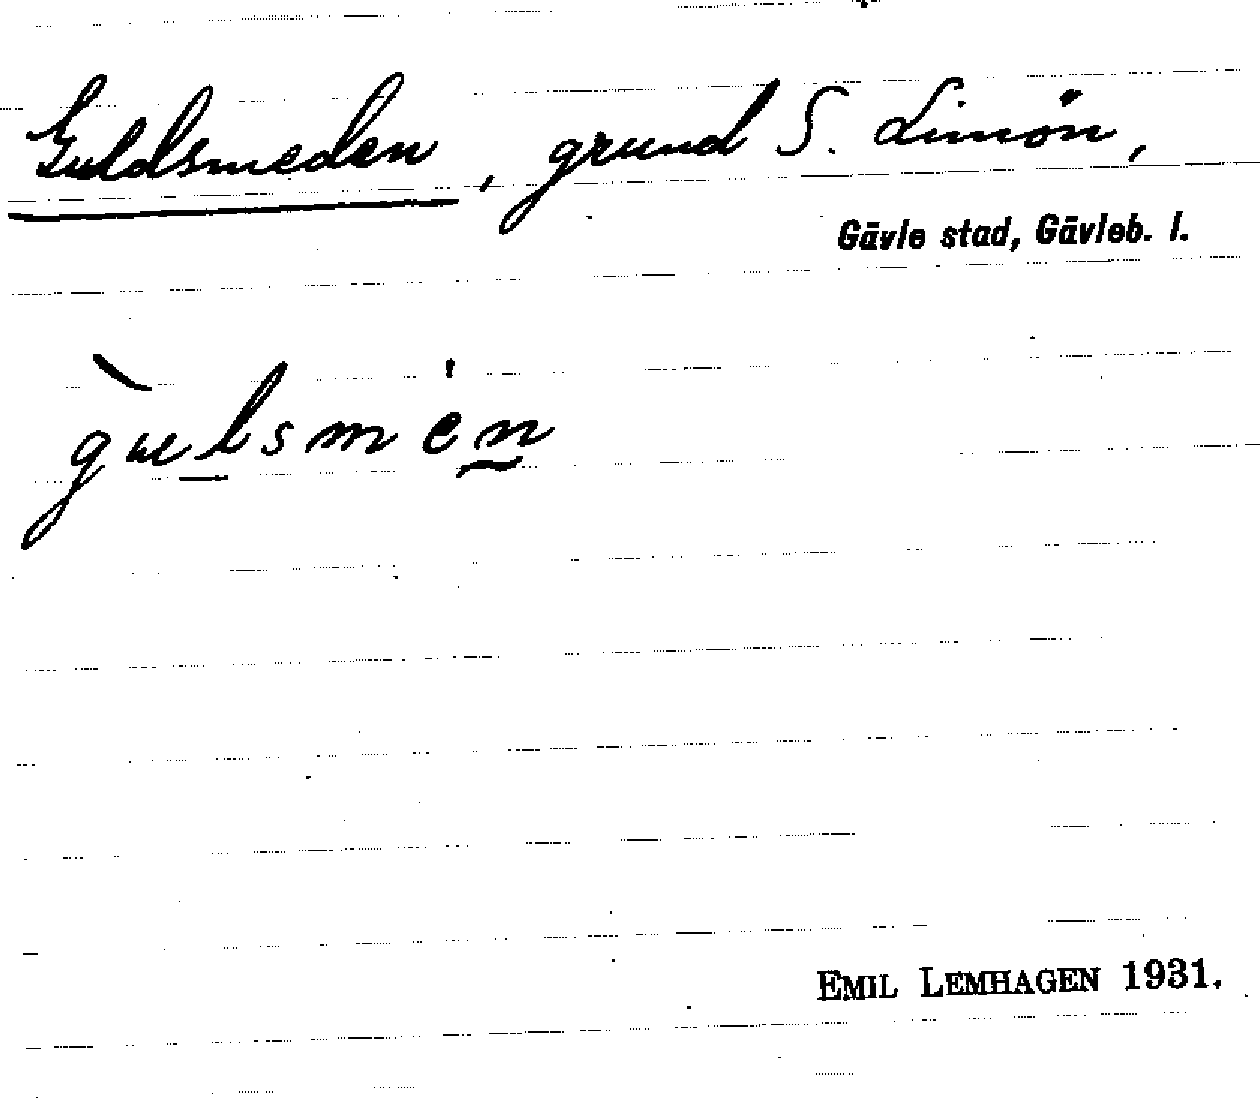 Guldsmeden, grund S. Limön,
Gävle stad, Gävleb. l.
gulsmen
EMIL LEMHAGEN 1931.